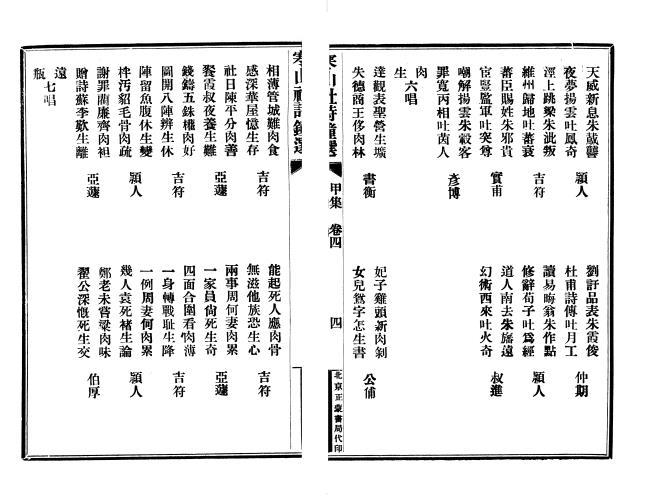 天威新息朱蕺讋　劉訏品表朱霞俊
夜夢揚雲吐鳳奇　潁人　杜甫詩傳吐月工　仲期
涇上跳樑朱泚叛　讀易晦翁朱作點
維州歸地吐蕃衰　吉符　修辭荀子吐爲經　潁人
蕃臣賜姓朱邪貴　道人南去朱旛遠
宦豎監軍吐突尊　實甫　幻術西來吐火奇　叔進
嘲解揚雲朱轂客
罪寬丙相吐茵人　彥博
肉
生　六唱
達觀表聖營生壙　妃子雞頭新肉剝
失德商王侈肉林　書衡　女兒鴛字怎生書　公俌
寒山社詩鐘選　甲集　卷四　四　北京正蒙書局代印
寒山社詩鐘選
相薄管城難肉食　能起死人應肉骨
感深華屋憶生存　吉符　無滋他族恐生心　吉符
社日陳平分肉善　兩事周何妻肉累
餐霞叔夜養生難　亞蘧　一家員尙死生奇　亞蘧
錢鑄五銖權肉好　四面合圍看肉薄
圖開八陣辨生休　吉符　一身轉戰耻生降　吉符
陣留魚腹休生變　一例周妻何肉累
拌污貂毛骨肉疏　潁人　幾人袁死褚生論　潁人
謝罪藺廉齊肉袒　鄭老未嘗粱肉味
贈詩蘇李歎生離　亞蘧　翟公深慨死生交　伯厚
遠
瓶　七唱